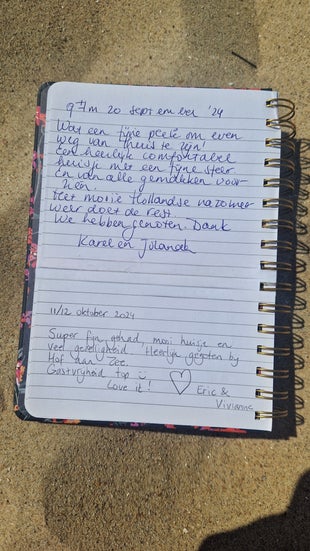 9 t/m 20 september '24
Wat een fijne plek om even
weg van thuis te zijn!
Een heerlijk comfortabel
huisje met een fijne sfeer
En van alle gemakken voor-
zien.
Het mooie Hollandse nazomer
weer doet de rest
We hebben genoten. Dank
Karel en Jolanda
11/12 oktober 2024
Super fijn gehad, mooi huisje en
veel gezelligheid. Heerlijk gegeten bij
Hof aan Zee.
Gastvrijheid top
Love it!
Eric &
Vivianne